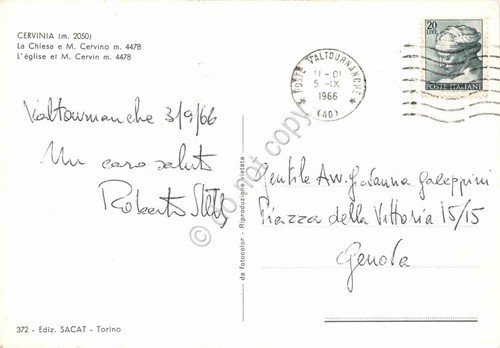 CERVINIA (m. 2050)
La Chiesa e M. Cervino m. 4478
L'église et M. Cervin m. 4478
20
LIRE
POSTE ITALIANE
* POSTE VALTOURNANCHE *
11-01
5-IX
1966
(AO)
Valtournanche 3/9/66
Un caro saluto
Roberto
Gentile Avv. Giovanna Galeppini
Piazza della Vittoria 15/15
Genova
da fotocolor - Riproduzione vietata
372 - Ediz. SACAT - Torino
do not copy